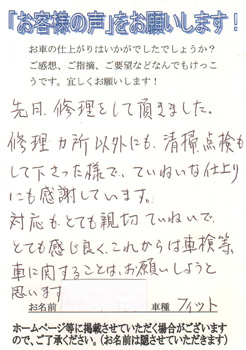 「お客様の声」をお願いします！
お車の仕上がりはいかがでしたでしょうか？
ご感想、ご指摘、ご要望などなんでもけっこ
うです。宜しくお願いします！
先日、修理をして頂きました。
修理カ所以外にも、清掃点検も
して下さった様で、ていねいな仕上り
にも感謝しています。
対応もとても親切ていねいで、
とても感じ良く、これからは車検等、
車に関することは、お願いしようと
思います
お名前 車種 フィット
ホームページ等に掲載させていただく場合がございます
ので、ご了承ください。（お名前は隠させていただきます）